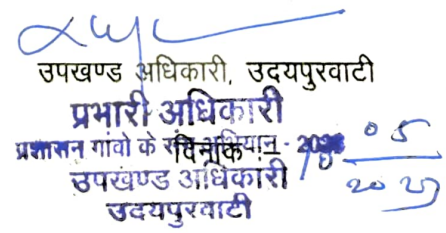 उपखण्ड अधिकारी, उदयपुरवाटी
प्रभारी अधिकारी
प्रशासन गांवो के संग अभियान -
दिनांक :
उपखण्ड अधिकारी
उदयपुरवाटी